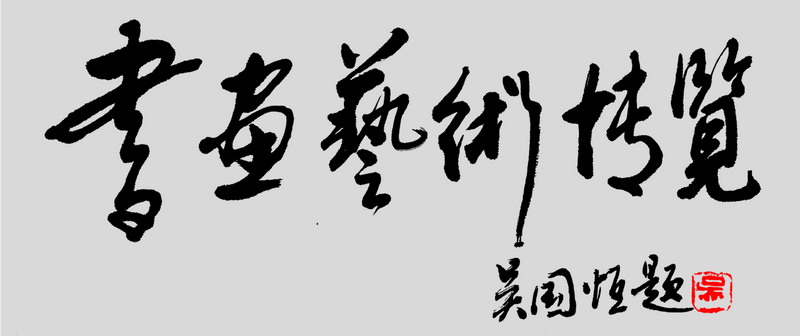 書画藝術博覽
吴国恒题
吴